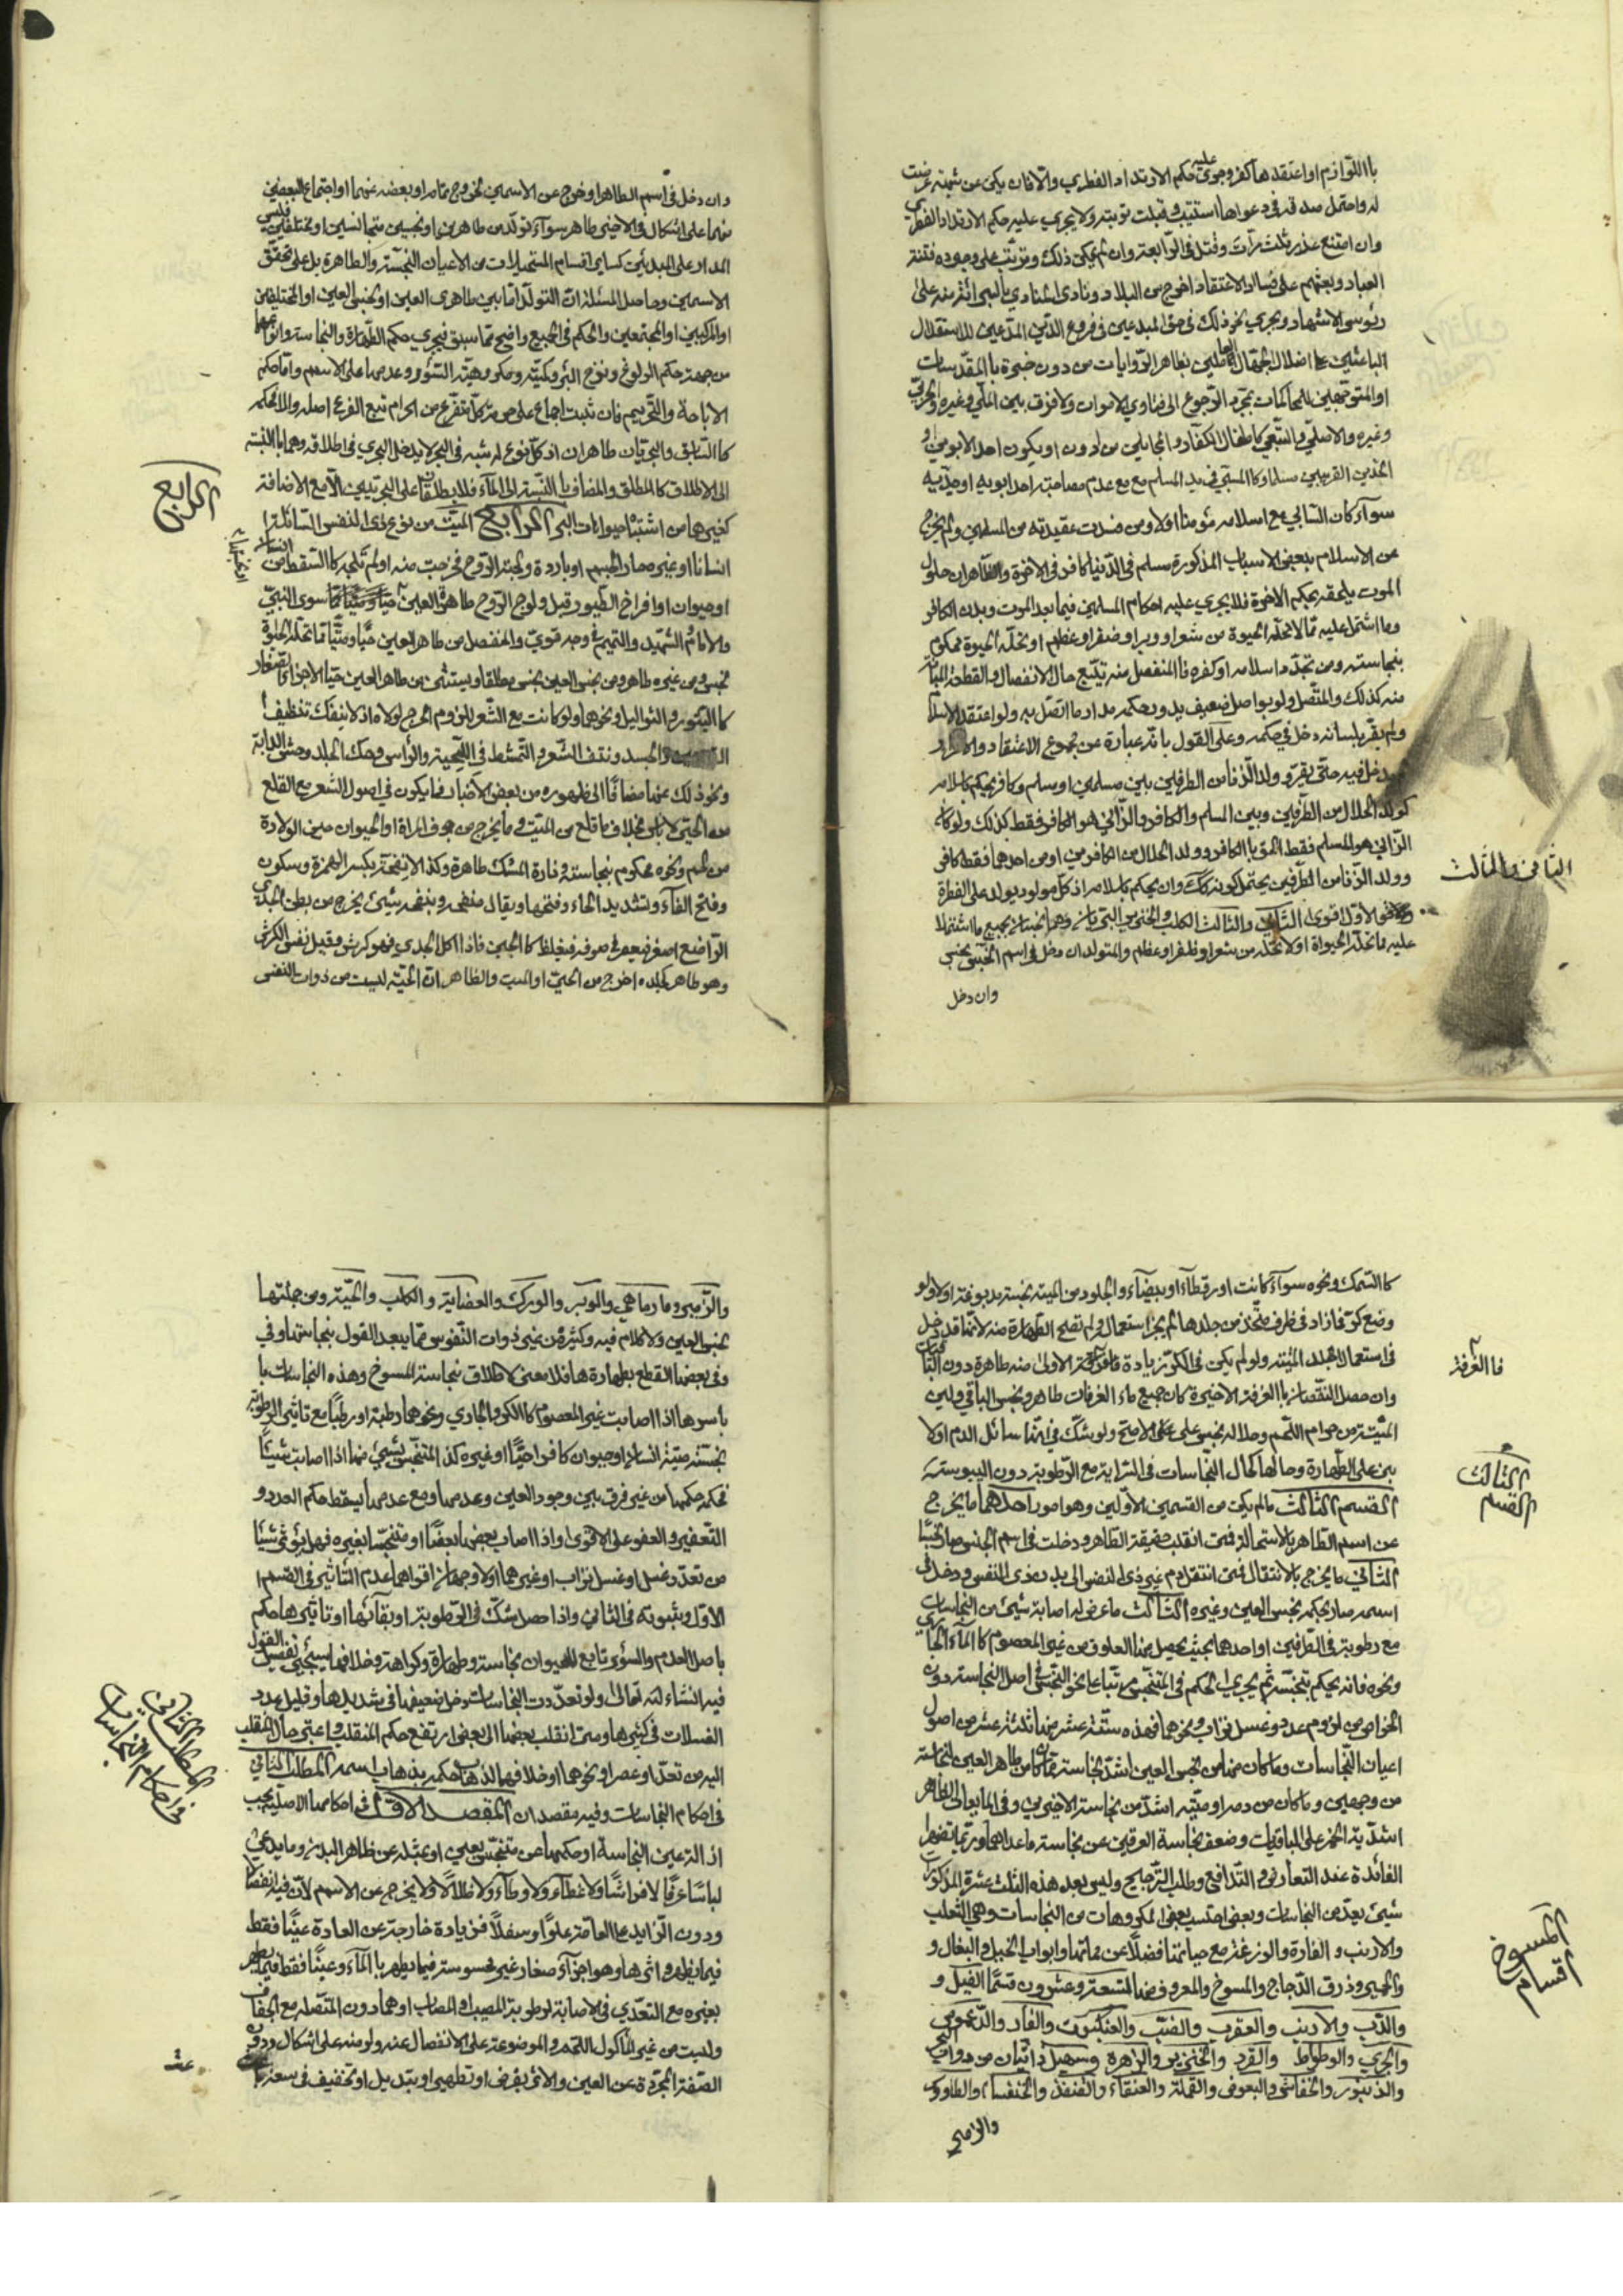 باللوازم او اعتقدها كفر وجرى عليه حكم الارتداد الفطري والا فان يكن عن شبهة عرضت
له واحتمل صدقه في دعواها استتيب وقبلت توبته ولا يجري عليه حكم الارتداد الفطري
وان امتنع عذر ثلث مرات وقتل في الرابعة وان لم يمكن ذلك وترتب على وجوده فتنة
العباد وبعثهم على فساد الاعتقاد اخرج من البلاد ونادى المنادي بالبرائة منه على
رؤس الاشهاد ويجري نحو ذلك في حق المبدعين في فروع الدين المدعين للاستقلال
الباعثين على اضلال الجهال العاملين بظاهر الروايات من دون خبرة بالمقدسات
او المتوجهين للمحاكمات بمجرد الرجوع الى فتاوي الاموات ولا فرق بين الملي وغيره والحربي
وغيره والاصلي والتبعي كاطفال الكفار والمجانين من دون ان يكون احد الابوين و
الجدين القريبين مسلما وكالمسبي في يد المسلم مع عدم مصاحبة احد ابويه او جديه
سواء كان السابي مع اسلامه مؤمنا اولا ومن فسدت عقيدته من المسلمين ولم يخرج
عن الاسلام ببعض الاسباب المذكورة مسلم في الدنيا كافر في الاخرة والظاهر ان حلول
الموت يلحقه بحكم الاخرة فلا يجري عليه احكام المسلمين فيما بعد الموت وبدن الكافر
وما اشتمل عليه مما لا تحله الحيوة من شعر او وبر او ظفر او عظم او تحله الحيوة محكوم
بنجاسته ومن تجدد اسلامه او كفره فالمنفصل منه يتبع حال الانفصال والقطعة المبانة
منه كذلك والمتصل ولو بواصل ضعيف يدور حكمه مدار ما اتصل به ولو اعتقد الاسلام
ولم يقر بلسانه دخل في حكمه وعلى القول بانه عبارة عن مجموع الاعتقاد والاقرار
لم يدخل فيه حتى يقر وولد الزنا من الطرفين بين مسلمين او مسلم وكافر يحكم باسلامه
كولد الحلال من الطرفين وبين المسلم والكافر والزاني هو الكافر فقط كذلك ولو كان
الزاني هو المسلم فقط الحق بالكافر وولد الحلال من الكافرين او من احدهما فقط كافر
وولد الزنا من الطرفين يحتمل كونه كذلك وان يحكم باسلامه اذ كل مولود يولد على الفطرة
الاول اقوى الثاني والثالث الكلب والخنزير البريان وهما نجسان بجميع ما اشتملا
عليه مما تحله الحيواة اولا تحله من شعر او ظفر او عظم والمتولد ان دخل في اسم النجس نجس
وان دخل
الثاني والثالث
وان دخل في اسم الطاهر او خرج عن الاسمين بخروج تمامه او بعضه عنهما او اجتماع البعضين
منهما على اشكال في الاخير طاهر سواء تولد من طاهرين او نجسين متجانسين او مختلفين وليس
المدار على المبدئين كسائر اقسام المستحيلات من الاعيان النجسة والطاهرة بل على تحقق
الاسمين وحاصل المسئلة ان التولد اما بين طاهري العين او نجسي العين او المختلفين
او المركبين او المجتمعين والحكم في الجميع واضح مما سبق فيجري حكم الطهارة والنجاسة وتوابعهما
من جهة حكم الولوغ ونزح البئر وكميته ومكروهية السؤر وعدمها على الاسم واما حكم
الاباحة والتحريم فان ثبت اجماع على حرمة كل متفرع من الحرام تبع الفرع اصله والا فالحكم
كالسابق والبحريان طاهران اذ كل نوع له شبه في البحر لا يدخل البحري في اطلاقه وهما بالنسبة
الى الاطلاق كالمطلق والمضاف بالنسبة الى الماء فلا يطلقان على البحريين الا مع الاضافة
كغيرهما من اشباه حيوانات البر الرابع الميت من نوع ذي النفس السائلة
انسانا او غيره صار الجسم او باردة ولجته الروح فخرجت منه او لم تلجه كالسقط من انسان
او حيوان او افراخ الطيور قبل ولوج الروح طاهر العين سوى النبي
والامام والشهيد والتميم في وجه قوي والمنفصل من طاهر العين حيا وميتا مما تحله الحيوة
نجس ومن غيره طاهر ومن نجس العين نجس مطلقا ويستثنى من طاهر العين حيا الاجزاء الصغار
كالبثور والثواليل ونحوهما ولو كانت مع الشعر للزوم الحرج لولاه اذ لا ينفك تنظيف
والجسد ونتف الشعر والتمشط في اللحية والراس وحك الجلد وحش الدابة
ونحو ذلك عنها مضافا الى ظهوره من بعض الاخبار فما يكون في اصول الشعر مع القلع
من الحي لا باس بخلاف ما قلع من الميت وما يخرج من جوف المراة او الحيوان حين الولادة
من لحم ونحوه محكوم بنجاسته وفارة المسك طاهرة وكذا الانفحة بكسر الهمزة وسكون
وفتح الفاء وتشديد الحاء وفتحها ويقال منفحه وبنفحه شيئ يخرج من بطن الجدي
الراضع اصفر فيعصر في صوفه فيغلظ كالجبن فاذا اكل الجدي فهو كرش وقيل نفس الكرش
وهو طاهر كجلده اخرج من الحي او الميت والظاهر ان الحية ليست من ذوات النفس
الرابع
كالسمك ونحوه سواء كانت او رقطاء او بيضاء والجلود من الميتة نجسة مدبوغة اولا ولو
وضع كر فما زاد في ظرف متخذ من جلدها لم يجز استعماله ولم تصح الطهارة منه لانها قد تدخل
في استعمال الجلد الميتة ولو لم يكن في الكر زيادة فالغرفة الاولى منه طاهرة دون الباقيات
وان حصل النقصان بالغرفة الاخيرة كان جميع ماء الغرفات طاهر ونجس الباقي وليس
الميتة من حرام اللحم وحلاله نجس على الاصح ولو شك في انها سائل الدم اولا
بني على الطهارة وحالها كحال النجاسات في السراية مع الرطوبة دون اليبوسة
القسم الثالث مالم يكن من القسمين الاولين وهو امور احدهما ما يخرج
عن اسم الطاهر بالاستحالة فمتى انقلبت حقيقة الطاهر ودخلت في اسم النجس صار نجسا
الثاني ما يخرج بالانتقال فمتى انتقل دم غير ذي النفس الى بدن ذي النفس ودخل في
اسمه صار بحكم نجس العين وغيره الثالث ما عرض له اصابة شيئ من النجاسات
مع رطوبة في الطرفين او احدهما بحيث يحصل بها العلوق من غير المعصوم كالماء الجاري
ونحوه فانه يحكم بتنجسه ثم يجري الحكم في المتنجس مرتبا على نحو النجس في اصل النجاسة دون
الخواص من لزوم عدد وغسل تراب ونحوهما فهذه ستة عشر منها ثلثة عشر من اصول
اعيان النجاسات وما كان منها من نجس العين اشد نجاسة مما كان من طاهر العين لنجاسته
من وجهين وما كان من دمه او ميتته اشد من نجاسة الاخيرين وفي المايعات الظاهر
اشدية الخمر على الباقيات وضعف نجاسة العرقين عن نجاسة ما عداهما وربما تظهر
الفائدة عند التعارض والتدافع وطلب الترجيح وليس بعد هذه الثلث عشرة المذكورة
شيئ يعد من النجاسات وبعض احتسب بعض المكروهات من النجاسات وهي الثعلب
والارنب والفارة والوزغة مع حياتها فضلا عن مماتها وابوال الخيل والبغال و
والحمير وذرق الدجاج والمسوخ والمعروف منها تسعة وعشرون قسما الفيل و
والدب والارنب والعقرب والضب والعنكبوت والفار والدعموص
والجري والوطواط والقرد والخنزير والزهرة وسهيل دابتان من دواب البحر
والزنبور والخفاش والبعوض والقملة والعنقاء والقنفذ والخنفساء والطاووس
والزمير
فالغرفة
القسم الثالث
اقسام المسوخ
والزمير ومارماهي والوبر والورك والعضاية والكلب والحية ومن جملتها
نجس العين ولا كلام فيه وكثير من غير ذوات النفوس مما يبعد القول بنجاستها وفي
وفي بعضها القطع بطهارة ها فلا معنى لاطلاق نجاسة المسوخ وهذه النجاسات با
باسرها اذا اصابت غير المعصوم كالكر والجاري ونحوهما رطبة او رطبا مع تاثير الرطوبة
نجسته ميتة انسان او حيوان كافر احيا او غيره كذا المتنجس بشيئ منها اذا اصابت شيئا
فحكمه حكمها من غير فرق بين وجود العين وعدمها ومع عدمها يسقط حكم العدد و
التعفير والعفو على الاقوى واذا اصاب بعضها بعضا او متنجسا بغيره فهل يؤثر شيئا
من تعدد غسل او غسل تراب او غيرهما اولا وجهان اقواهما عدم التاثير في القسم
الاول وثبوته في الثاني واذا حصل شك في الرطوبة او بقائها او تاثيرها حكم
باصل العدم والسؤر تابع للحيوان نجاسة وطهارة وكراهة وخلافها سيجيئ تفصيل القول
فيه انشاء لله تعالى ولو تعددت النجاسات دخل ضعيفها في شديدها وقليل عدد
الغسلات في كثيرها ومتى انقلب بعضها الى بعض ارتفع حكم المنقلب واعتبر حال المنقلب
اليه من تعدد او عصر او نحوهما او خلافهما لذهاب حكمه بذهاب اسمه المطلب الثاني
في احكام النجاسات وفيه مقصدان المقصد الاول في احكامها الاصلية يجب
ازالة عين النجاسة او حكمها عن متنجس بعين او بمثله عن ظاهر البدن وما يدعى
لباسا عرفا لا فراشا ولا غطاء ولا وطاء ولا ظلالا ولا يخرج عن الاسم لان فيه انفصالا
ودون الزايد على العامة علوا وسفلا فن زيادة خارجة عن العادة عينا فقط
فيما يظهر واثرها وهو اجزاء صغار غير محسوسة فيما يطهر بالماء وعينا فقط فيما يطهر
بغيره مع التعدي في الاصابة لرطوبة المصيب او المصاب او هما دون المتصلة مع الجفاف
وليست من غير المأكول اللحم والموضوعة على الانفصال عنه ولو منه على اشكال ودون
الصفة المجردة عن العين والاثر بقرض او تطهير او تبديل او تخفيف في سعة
المطلب الثاني
في احكام النجاسات